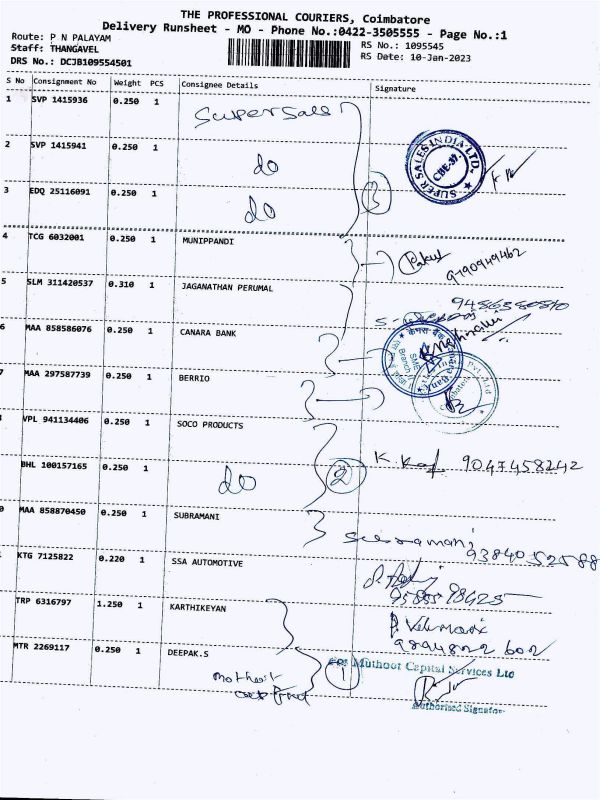 THE PROFESSIONAL COURIERS, Coimbatore
Delivery Runsheet - MO - Phone No.:0422-3505555 - Page No.:1
Route: P N PALAYAM
Staff: THANGAVEL
RS No.: 1095545
DRS No.: DCJB109554501
RS Date: 10-Jan-2023
S No Consignment No Weight PCS Consignee Details Signature
1 SVP 1415936 0.250 1 Supersale
2 SVP 1415941 0.250 1 do
3 EDQ 25116091 0.250 1 do
3
SUPER SALES INDIA LTD. CBE-37.
4 TCG 6032001 0.250 1 MUNIPPANDI
9790949462
5 SLM 311420537 0.310 1 JAGANATHAN PERUMAL
9486380810
6 MAA 858586076 0.250 1 CANARA BANK
SME Branch
7 MAA 297587739 0.250 1 BERRIO
Pvt. Ltd
VPL 941134406 0.250 1 SOCO PRODUCTS
BHL 100157165 0.250 1 do
2
K. 9047458242
0 MAA 858870450 0.250 1 SUBRAMANI
9384052588
KTG 7125822 0.220 1 SSA AUTOMOTIVE
9585598425
TRP 6316797 1.250 1 KARTHIKEYAN
9894822602
MTR 2269117 0.250 1 DEEPAK.S
1
For Muthoot Capital Services Ltd
Authorised Signator